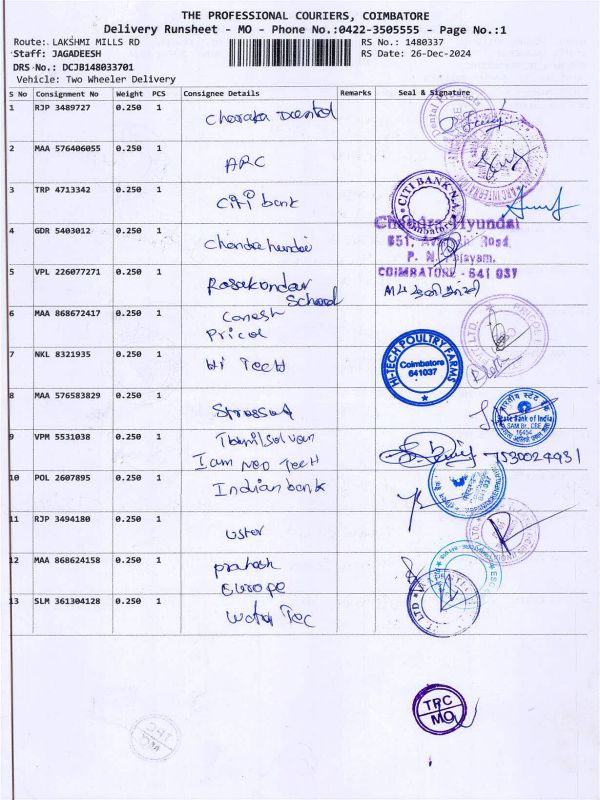 THE PROFESSIONAL COURIERS, COIMBATORE
Delivery Runsheet - MO - Phone No.:0422-3505555 - Page No.:1
Route: LAKSHMI MILLS RD RS No.: 1480337
Staff: JAGADEESH RS Date: 26-Dec-2024
DRS No.: DCJB148033701
Vehicle: Two Wheeler Delivery
S No Consignment No Weight PCS Consignee Details Remarks Seal & Signature
1 RJP 3489727 0.250 1 Charaka Dental
2 MAA 576406055 0.250 1 ARC
3 TRP 4713342 0.250 1 Citi bank
CITI BANK N.A.
Coimbatore
4 GDR 5403012 0.250 1 Chandra hundai
Chandra Hyundai
Road,
P. N.
COIMBATORE - 641 037
5 VPL 226077271 0.250 1
School
6 MAA 868672417 0.250 1 Ganesh
Pricol
7 NKL 8321935 0.250 1 Hi Tech
HI-TECH POULTRY FARMS
Coimbatore
641037
8 MAA 576583829 0.250 1
State Bank of India
SAM Br., CBE
9 VPM 5531038 0.250 1 Tamilselvan
I am neo Tech
7530024931
10 POL 2607895 0.250 1 Indian bank
11 RJP 3494180 0.250 1 uster
12 MAA 868624158 0.250 1 prakash
Europe
13 SLM 361304128 0.250 1 Water Tec
TPC
MO